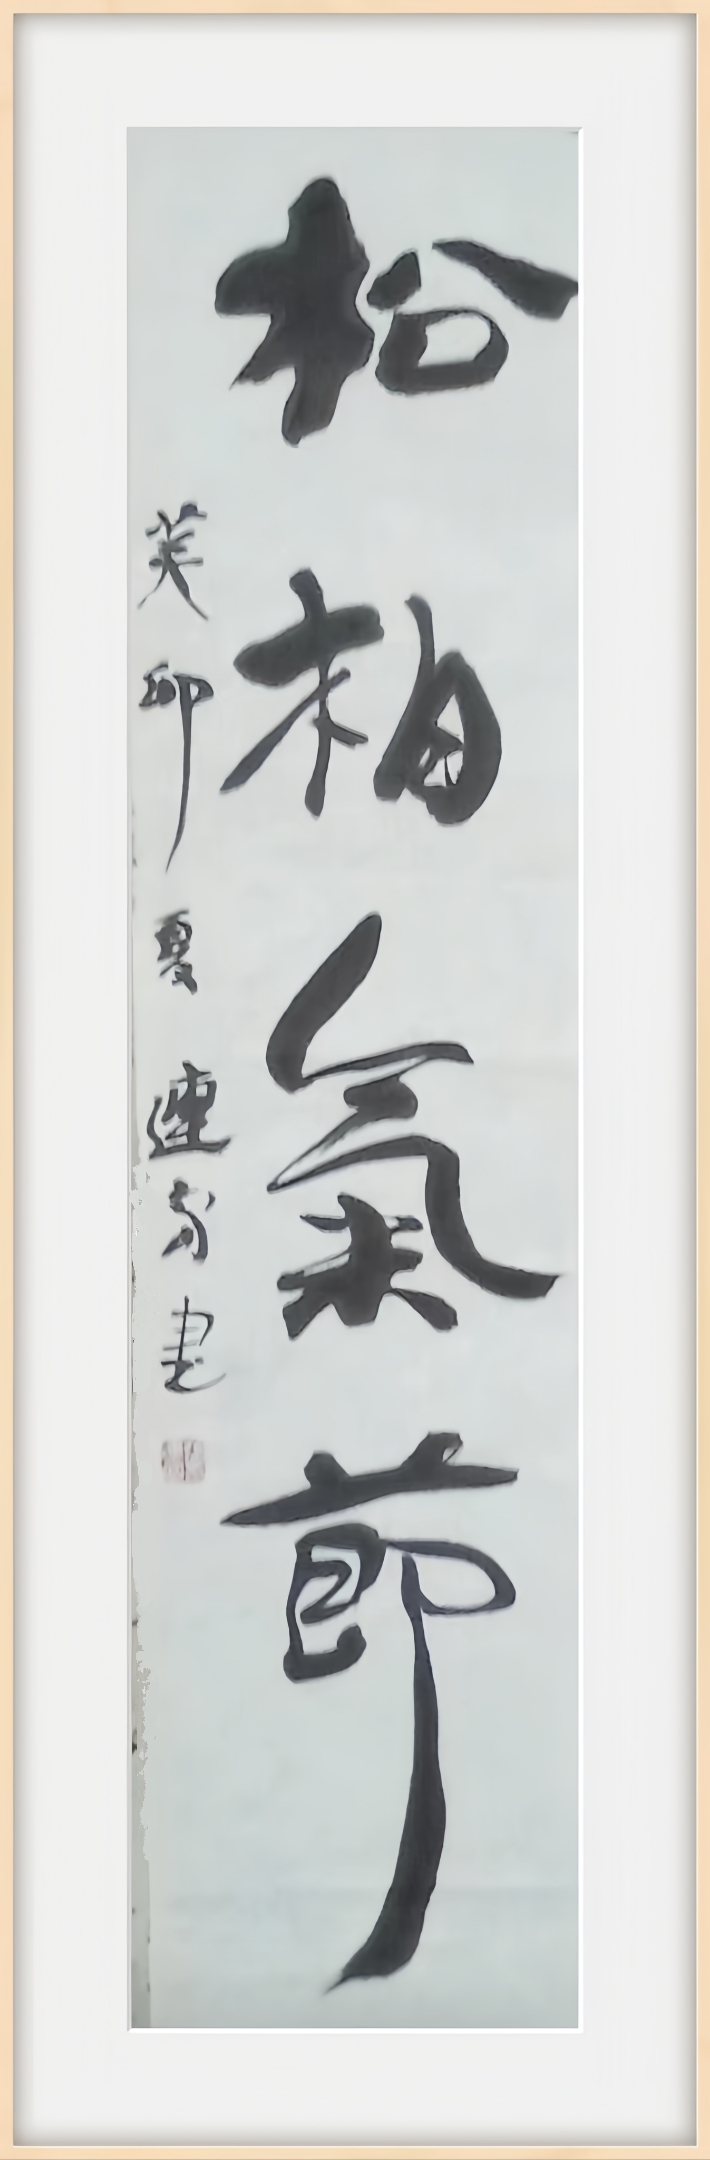 松柏氣節
癸卯夏連家書